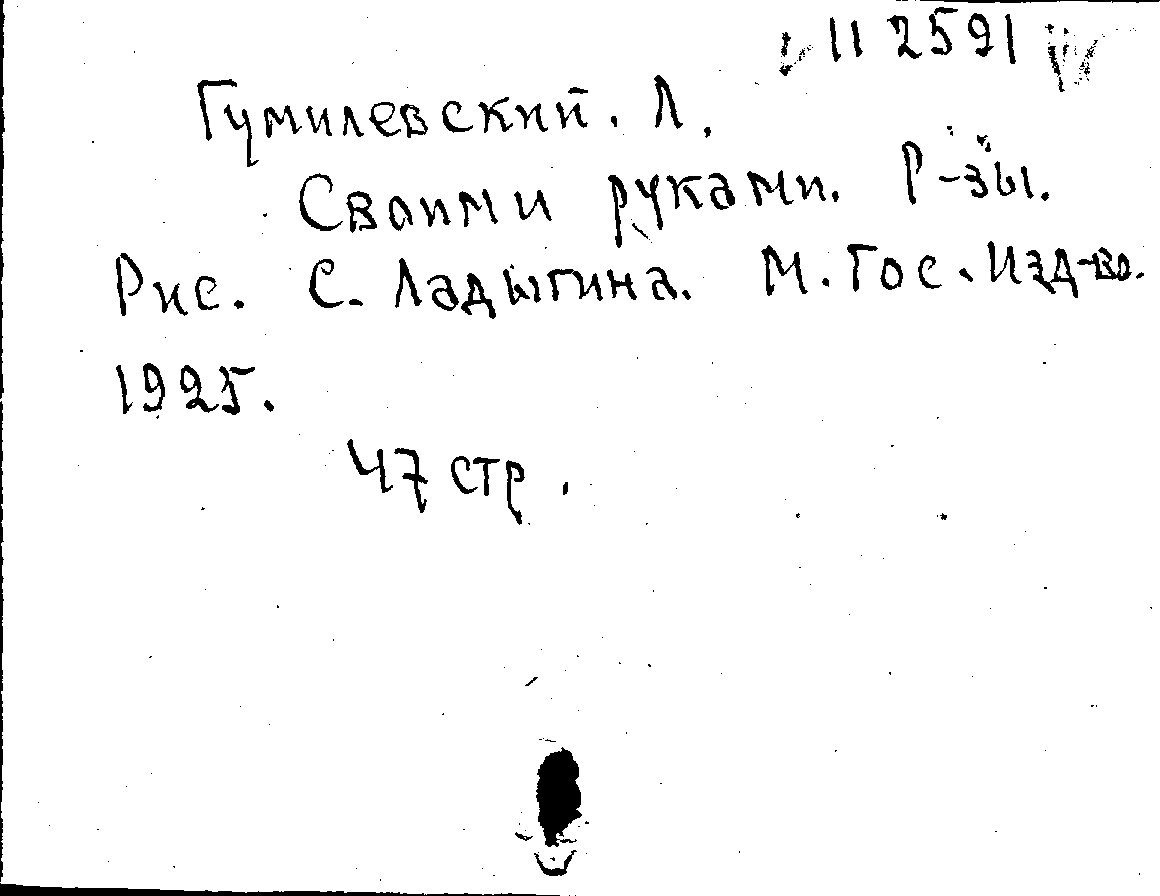 II 2591
Гумилевский. Л.
Своими руками. Р-зы.
Рис. С. Ладыгина. М. Гос. Изд-во.
1925.
47 стр.